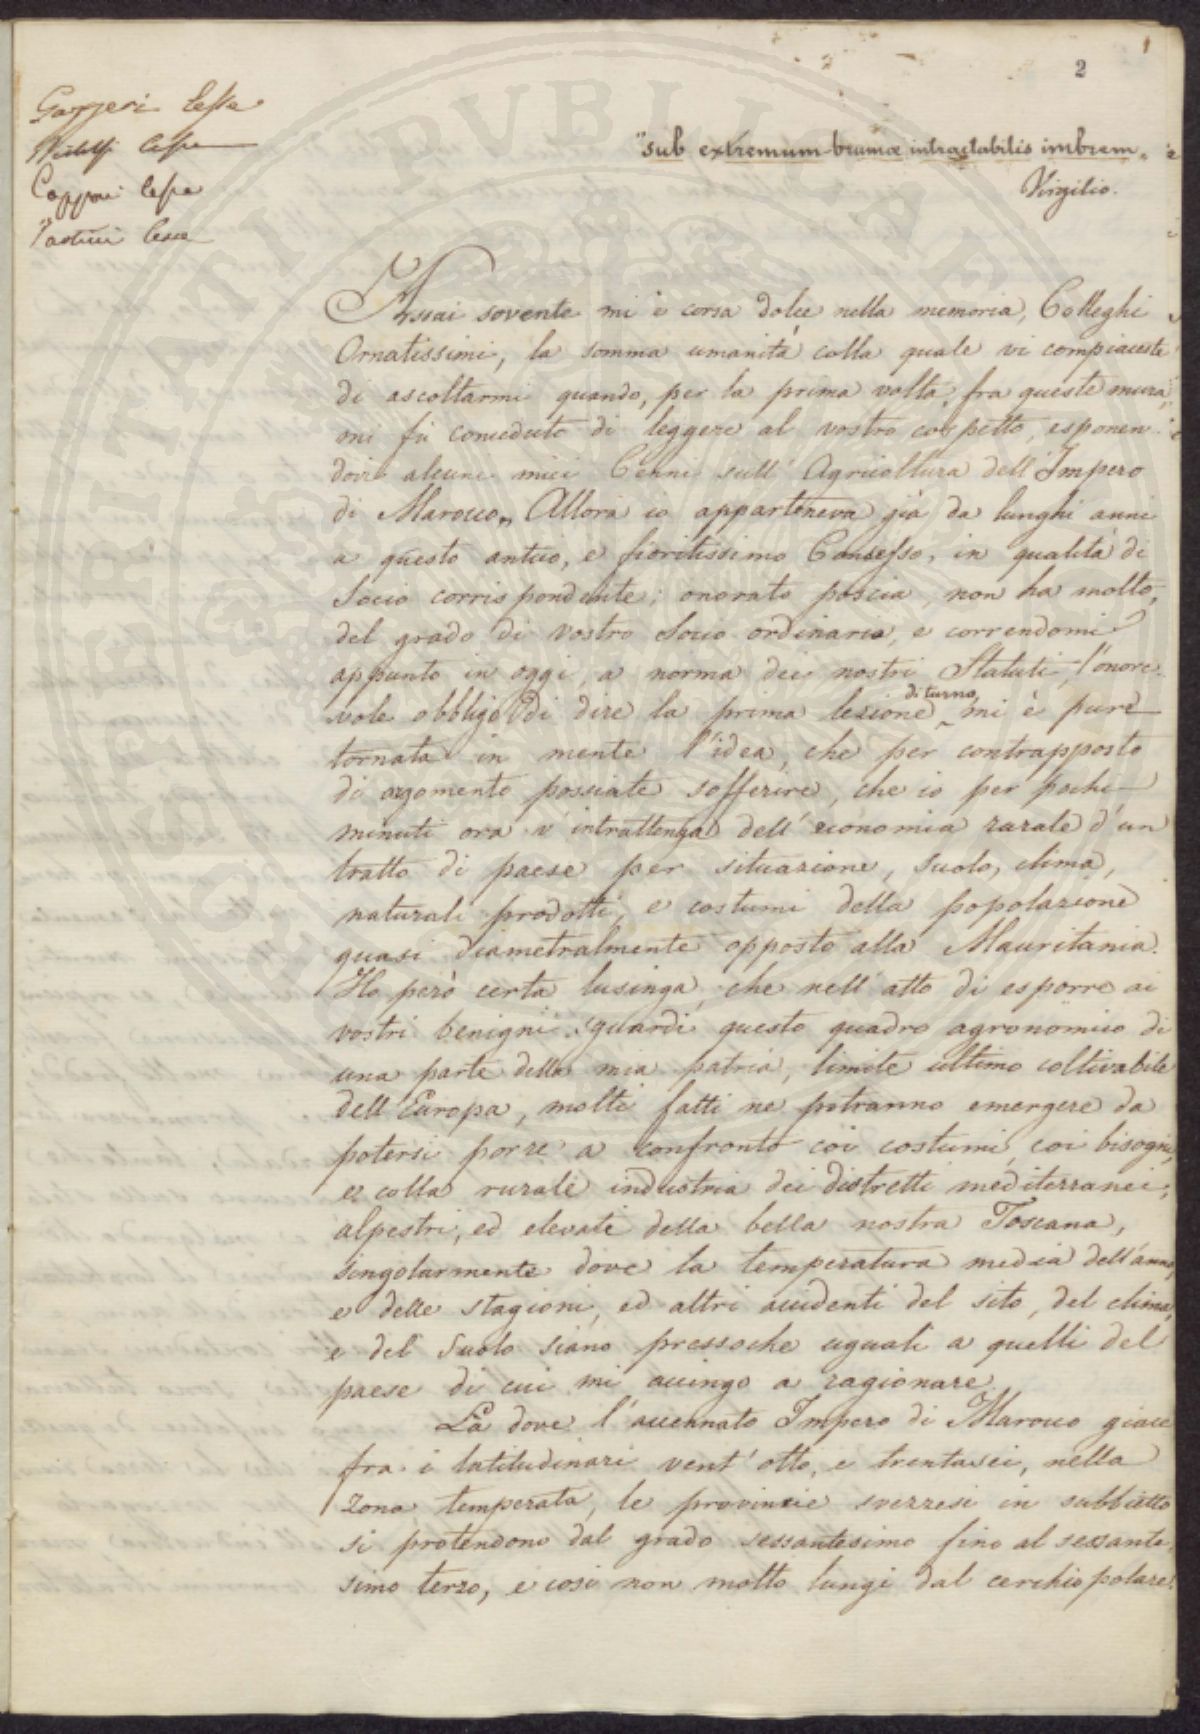 2
Gazzeri lesse
Ridolfi lesse
Capponi lesse
lesse
"sub extremum brumæ intractabilis imbrem„
Virgilio.
Assai sovente mi è corsa dolce nella memoria, Colleghi
Ornatissimi, la somma umanità colla quale vi compiaceste
di ascoltarmi quando, per la prima volta, fra queste mura,
mi fù conceduto di leggere al vostro cospetto, esponen-
dovi alcuni miei Cenni sull' Agricoltura dell'Impero
di Marocco„ Allora io apparteneva già da lunghi anni
a questo antico, e fioritissimo Consesso, in qualità di
Socio corrispondente; onorato poscia, non ha molto,
del grado di vostro Socio ordinario, e correndomi
appunto in oggi, a norma dei nostri Statuti, l'onore-
vole obbligo di dire la prima lezione di turno, mi è pure
tornata in mente l'idea, che per contrapposto
di argomento possiate sofferire, che io per pochi
minuti ora v'intrattenga dell' economia rurale d'un
tratto di paese per situazione, suolo, clima,
naturali prodotti, e costumi della popolazione
quasi diametralmente opposto alla Mauritania.
Ho però certa lusinga, che nell' atto di esporre ai
vostri benigni sguardi questo quadro agronomico di
una parte della mia patria, limite ultimo coltivabile
dell'Europa, molti fatti ne potranno emergere da
potersi porre a confronto coi costumi, coi bisogni,
e colla rurale industria dei distretti mediterranei,
alpestri, ed elevati della bella nostra Toscana,
singolarmente dove la temperatura media dell'anno,
e delle stagioni, ed altri accidenti del sito, del clima,
e del suolo siano pressoche uguali a quelli del
paese di cui mi accingo a ragionare.
Là dove l'accennato Impero di Marocco giace
fra i latitudinari vent'otto, e trentasei, nella
zona temperata, le provincie svezzesi in subbietto
si protendono dal grado sessantesimo fino al sessante-
simo terzo, e così non molto lungi dal cerchio polare.